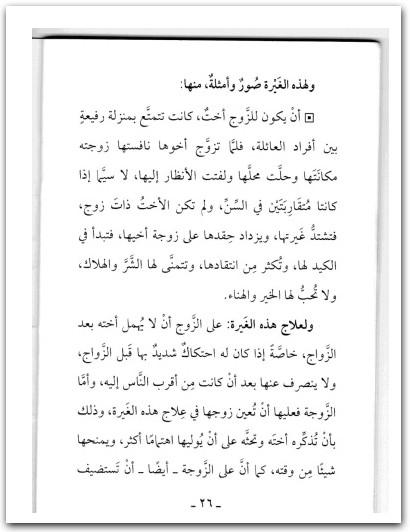 ولهذه الغَيْرة صُورٌ وأمثلةٌ، منها:
▣ أنْ يكون للزَّوج أختٌ، كانت تتمتَّع بمنزلة رفيعةٍ
بين أفراد العائلة، فلمَّا تزوَّج أخوها نافستها زوجته
مكانَتَها وحلَّت محلَّها ولفتت الأنظار إليها، لا سيَّما إذا
كانتا مُتقَارِبَتَيْن في السِّنِّ، ولم تكن الأختُ ذاتَ زوج،
فتشتدُّ غَيرتها، ويزداد حِقدها على زوجة أخيها، فتبدأ في
الكيد لها، وتُكثر مِن انتقادها، وتتمنَّى لها الشَّرَّ والهلاك،
ولا تُحبُّ لها الخير والهناء.
ولعلاج هذه الغَيرة: على الزَّوج أنْ لا يُهمل أخته بعد
الزَّواج، خاصَّةً إذا كان له احتكاكٌ شديدٌ بها قَبل الزَّواج،
ولا ينصرف عنها بعد أنْ كانت مِن أقرب النَّاس إليه، وأمَّا
الزَّوجة فعليها أنْ تُعين زوجها في عِلاج هذه الغَيرة، وذلك
بأنْ تُذكِّره أختَه وتحثَّه على أنْ يُوليها اهتمامًا أكثر، ويمنحها
شيئًا مِن وقته، كما أنَّ على الزَّوجة ـ أيضًا ـ أنْ تَستضيف
ـ ٢٦ ـ